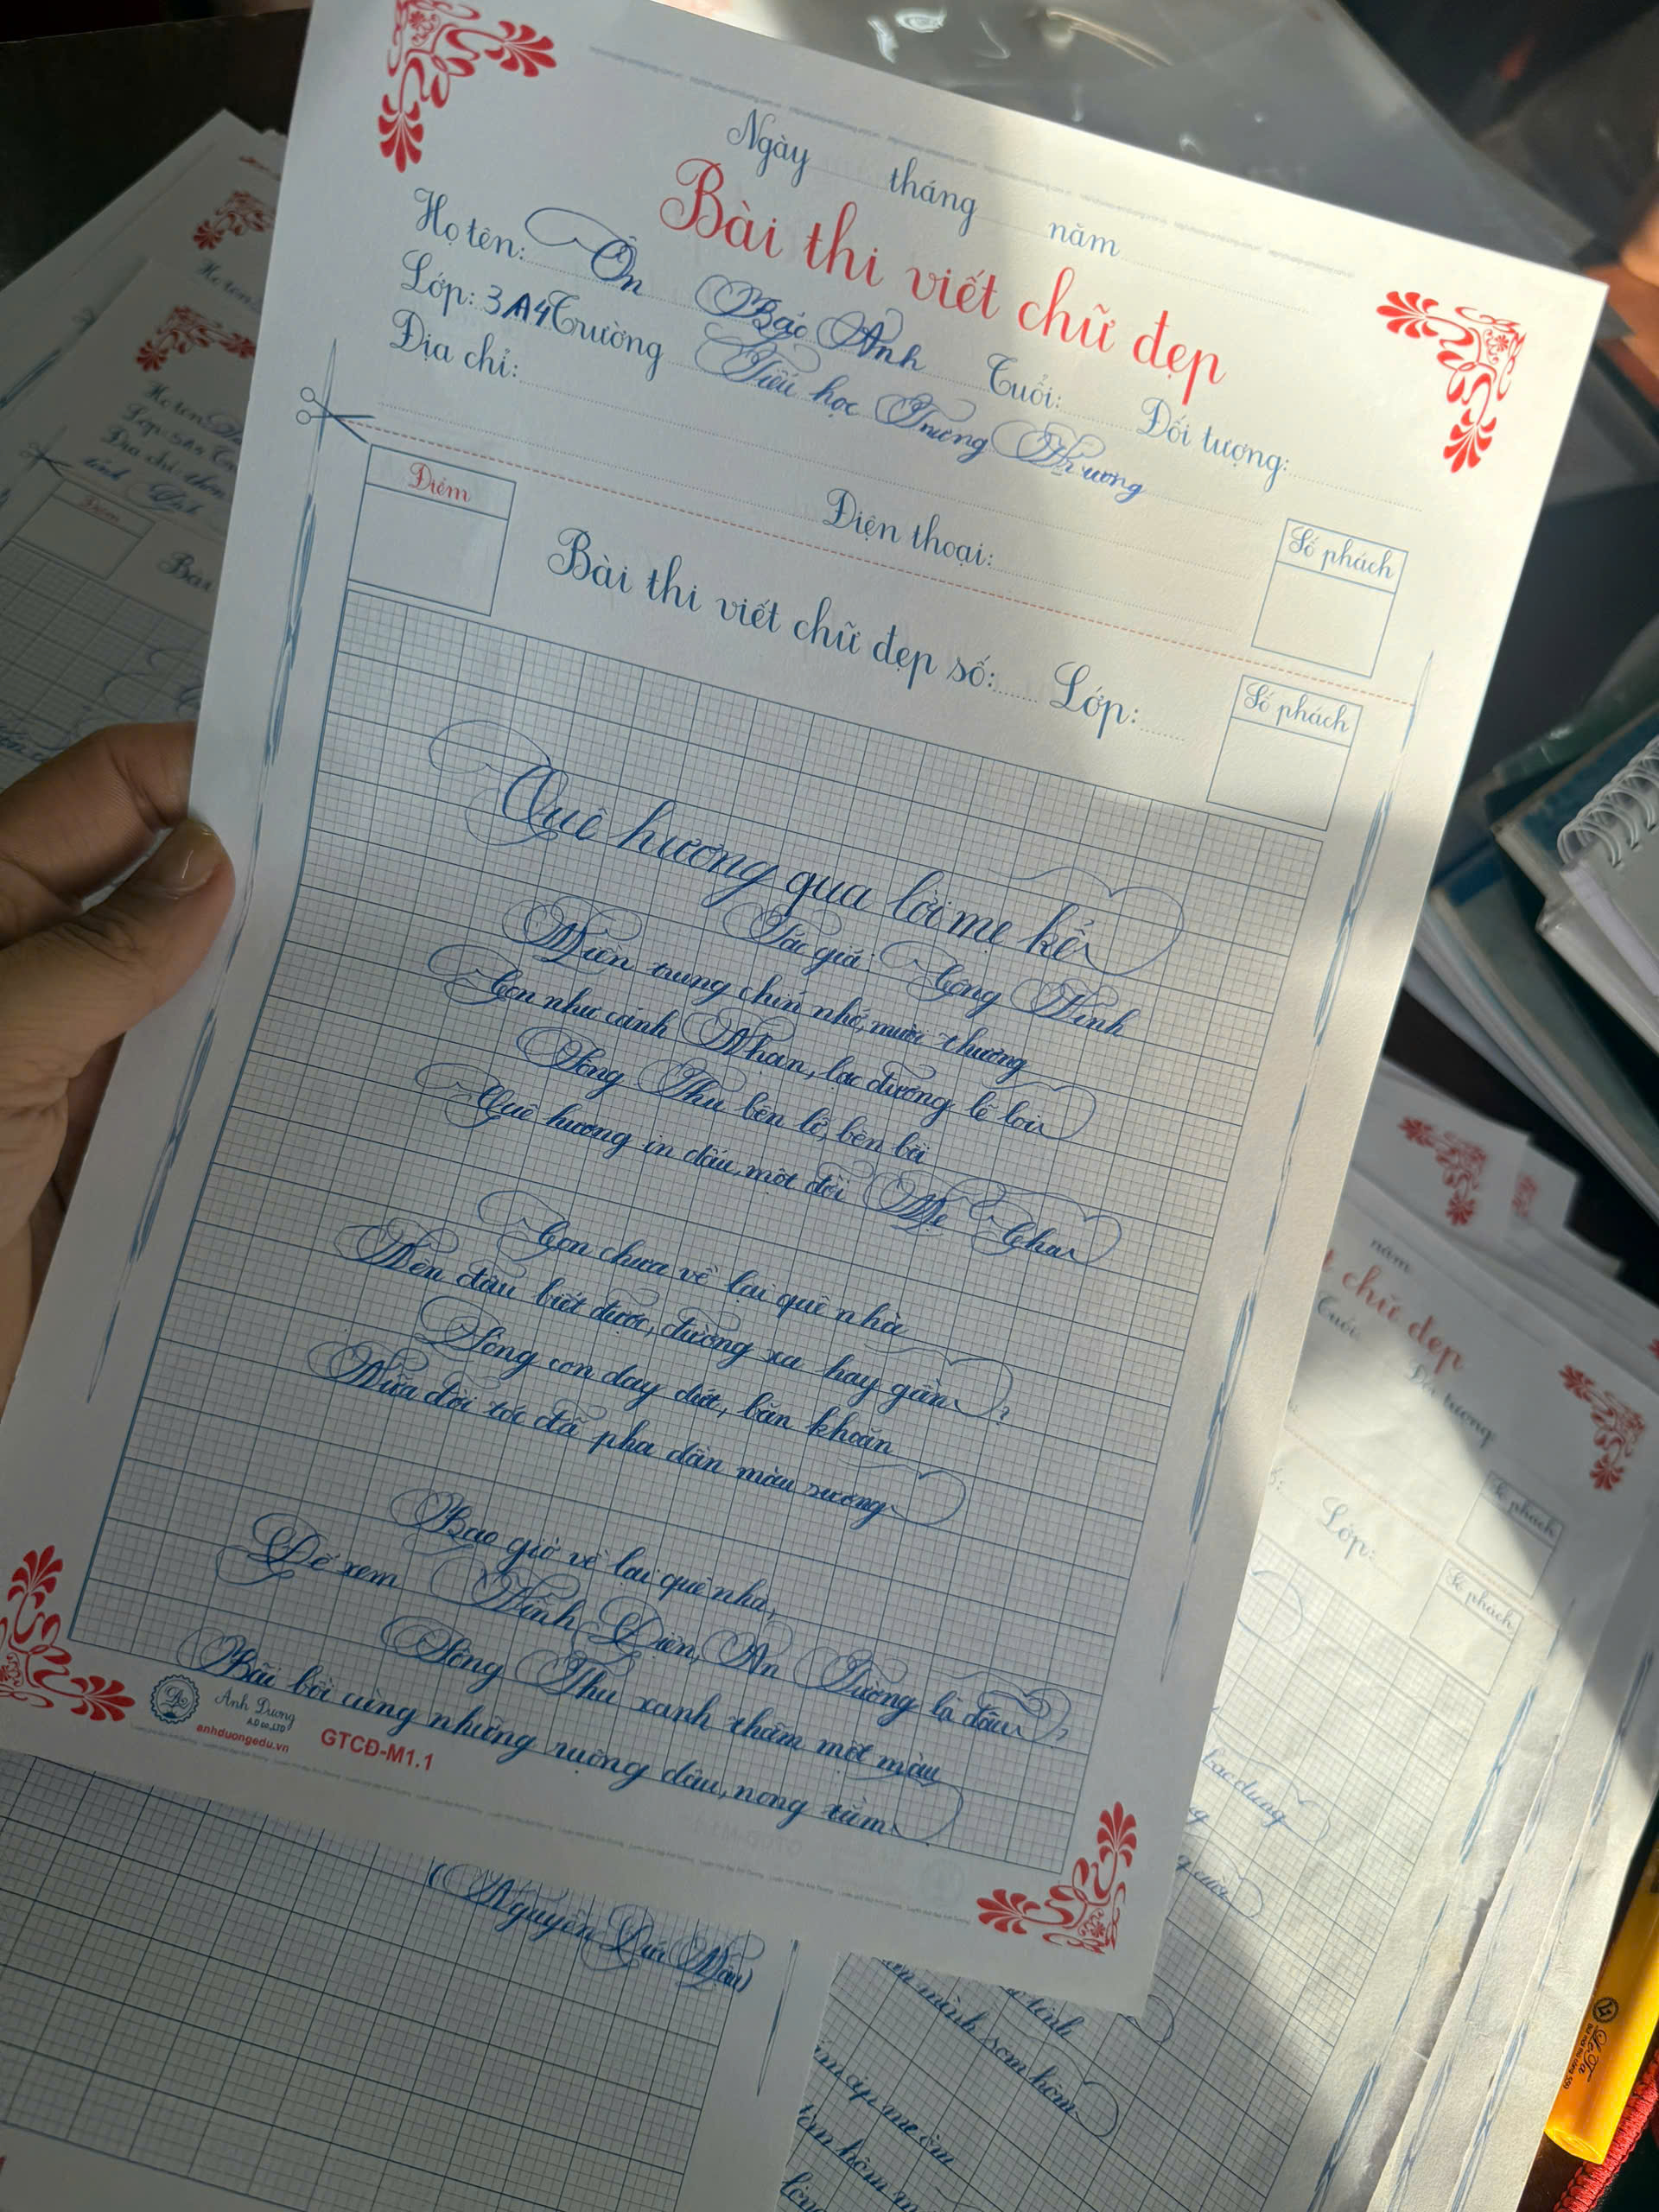 Ngày tháng năm
Bài thi viết chữ đẹp
Họ tên: Ôn Bảo Anh Tuổi: Đối tượng:
Lớp: 3A4 Trường Tiểu học Trương Hương
Địa chỉ:
Điện thoại:
Điểm
Số phách
Bài thi viết chữ đẹp số: Lớp:
Số phách
Quê hương qua lời mẹ kể
Tác giả: Công Hinh
Miền trung chín nhớ, mười thương
Con như cánh Nhạn, lạc đường lẻ loi
Sông Thu bên lở, bên bồi
Quê hương in dấu, một đời Mẹ Cha
Con chưa về lại quê nhà
Nên đâu biết được, đường xa hay gần?
Sống con day dứt, băn khoăn
Nửa đời tóc đã pha dần màu sương
Bao giờ về lại quê nhà,
Để xem Vĩnh Điện, An Tường là đâu?
Sông Thu xanh thẳm một màu
Bãi bồi cùng những ruộng dâu, nong tằm
Ánh Dương
A.D co.,LTD
anhduongedu.vn
GTCĐ-M1.1
(Nguyễn Đức Mậu)
năm
chữ đẹp
Tuổi
Đối tượng
Số phách
Lớp:
Số phách
mình sớm hôm